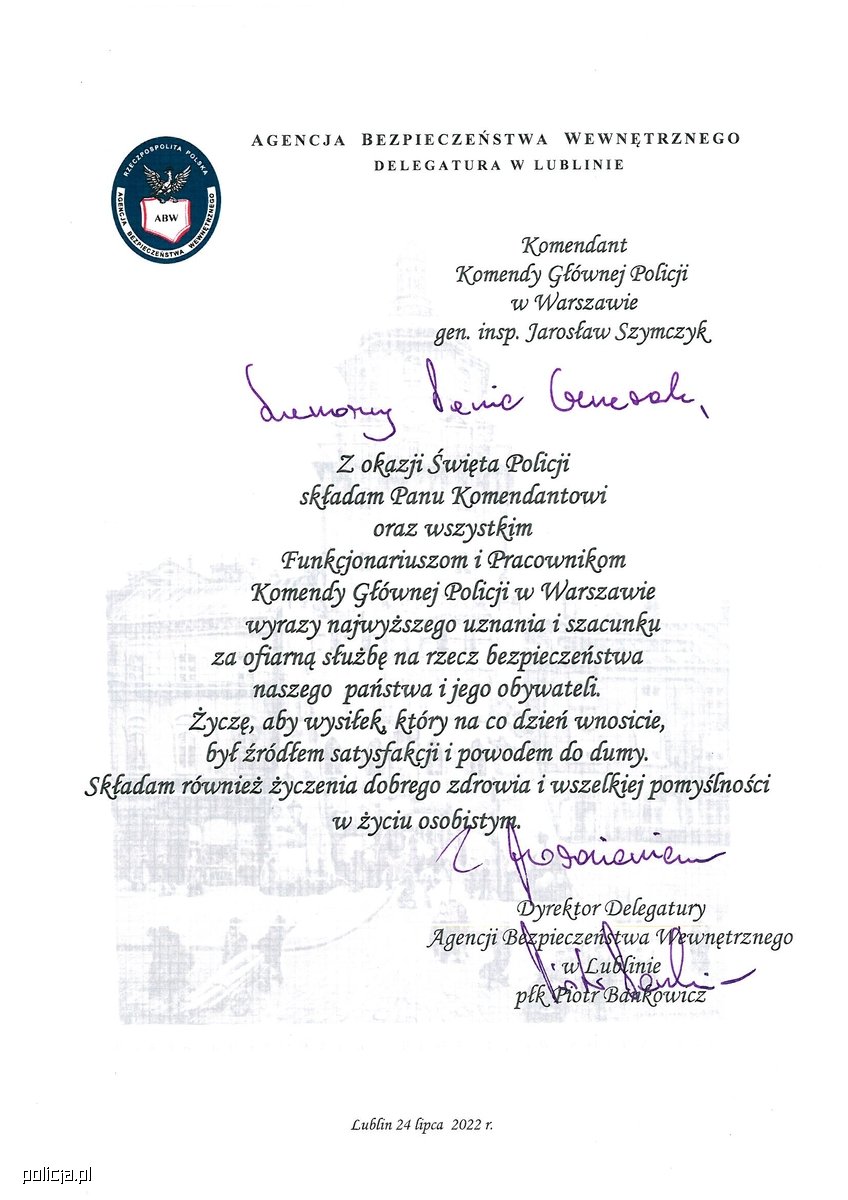 AGENCJA BEZPIECZEŃSTWA WEWNĘTRZNEGO
DELEGATURA W LUBLINIE
RZECZPOSPOLITA POLSKA
ABW
AGENCJA BEZPIECZEŃSTWA WEWNĘTRZNEGO
Komendant
Komendy Głównej Policji
w Warszawie
gen. insp. Jarosław Szymczyk
Szanowny Panie Generale,
Z okazji Święta Policji
składam Panu Komendantowi
oraz wszystkim
Funkcjonariuszom i Pracownikom
Komendy Głównej Policji w Warszawie
wyrazy najwyższego uznania i szacunku
za ofiarną służbę na rzecz bezpieczeństwa
naszego państwa i jego obywateli.
Życzę, aby wysiłek, który na co dzień wnosicie,
był źródłem satysfakcji i powodem do dumy.
Składam również życzenia dobrego zdrowia i wszelkiej pomyślności
w życiu osobistym.
Z poważaniem
Dyrektor Delegatury
Agencji Bezpieczeństwa Wewnętrznego
w Lublinie
płk Piotr Bańkowicz
Lublin 24 lipca 2022 r.
policja.pl